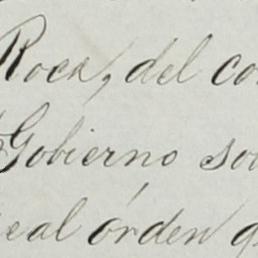 Roca, del co
Gobierno so
eal órden q